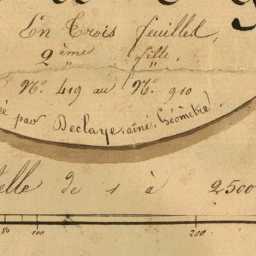 En Trois feuilles,
2ème fille.
Nos. 419 au No. 910
par Declaye, aîné, Géomètre
elle de 1 à 2500
50 100 200